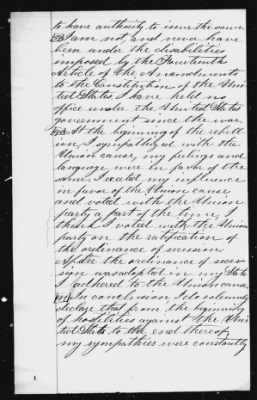 to have authority to issue the same
I am not, and never have
been under the disabilities
imposed by the Fourteenth
Article of the Amendments
to the Constitution of the Uni-
ted States. I have held no
office under the United States
government since the war.
At the beginning of the rebell
ion, I sympathized with the
Union cause, my feelings and
language were in favor of the
same, I exerted my influence
in favor of the Union cause,
and voted with the Union
party a part of the time, I
think I voted with the Union
party on the ratification of
the ordinance of secession.
After the ordinance of seces-
sion was adopted in my State
I adhered to the Union cause.
In conclusion I do solemnly
declare that from the beginning
of hostilities against the Uni-
ted States to the end thereof,
my sympathies were constantly